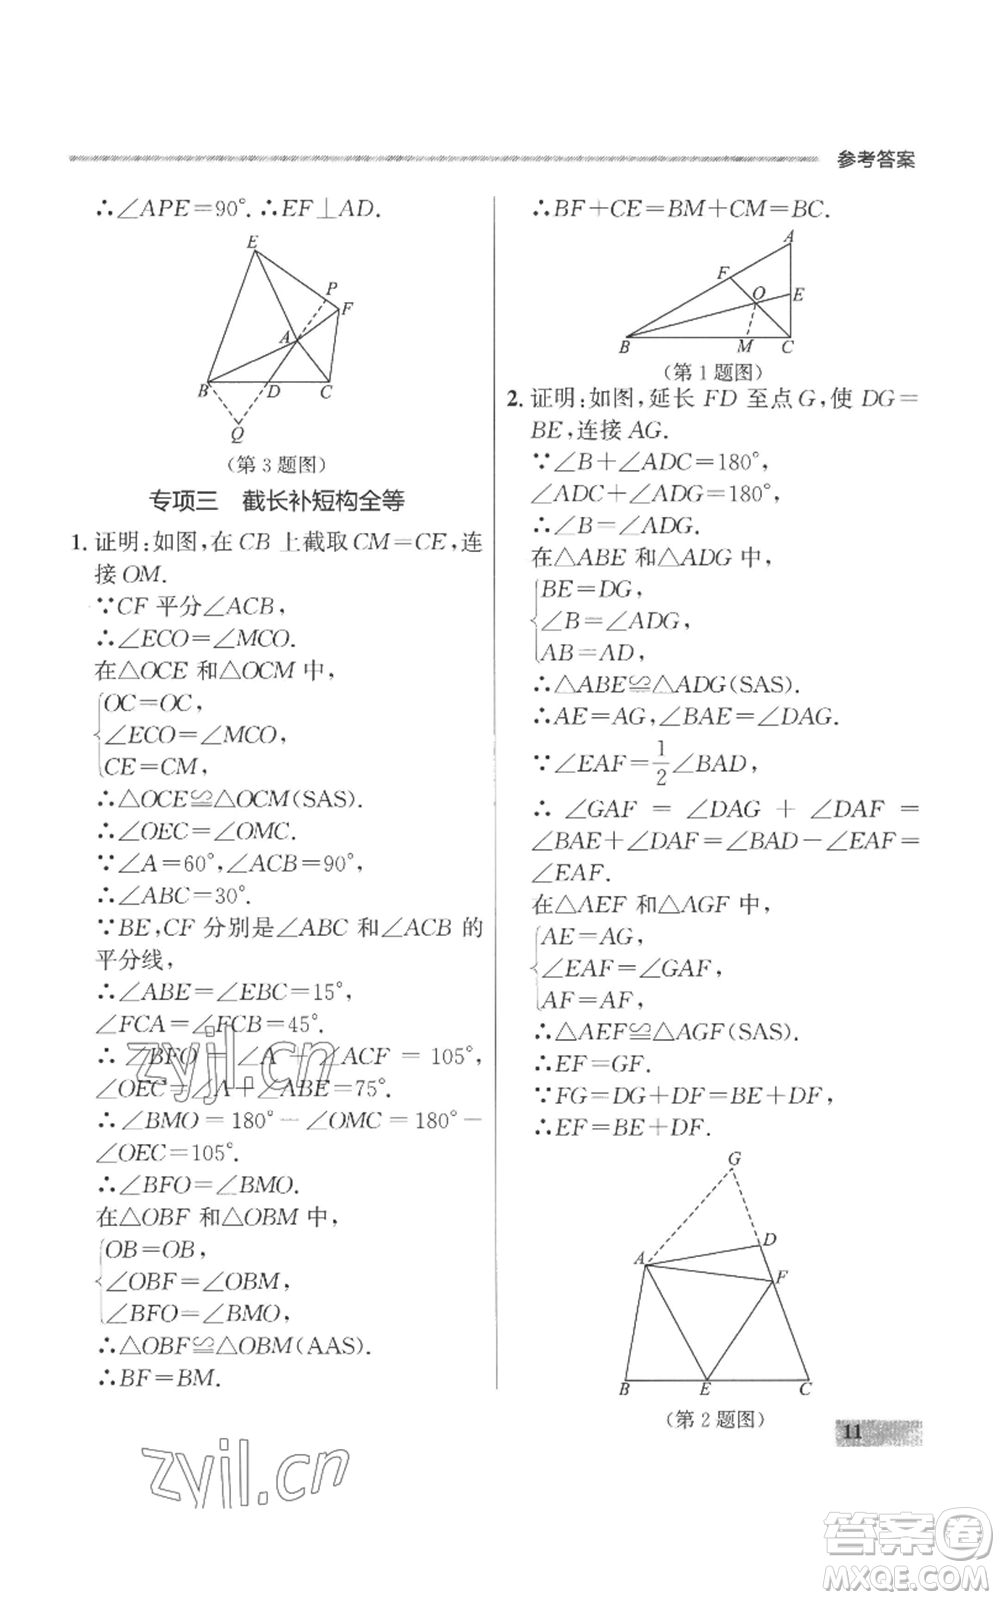 参考答案
∴∠APE=90°.∴EF⊥AD.
E
P
F
A
B
D
C
Q
(第3题图)
专项三 截长补短构全等
1. 证明:如图,在CB上截取CM=CE,连
接OM.
∵CF平分∠ACB,
∴∠ECO=∠MCO.
在△OCE和△OCM中,
OC=OC,
∠ECO=∠MCO,
CE=CM,
∴△OCE≌△OCM(SAS).
∴∠OEC=∠OMC.
∵∠A=60°,∠ACB=90°,
∴∠ABC=30°.
∵BE,CF分别是∠ABC和∠ACB的
平分线,
∴∠ABE=∠EBC=15°,
∠FCA=∠FCB=45°.
∴∠BFO=∠A+∠ACF=105°,
∠OEC=∠A+∠ABE=75°.
∴∠BMO=180°-∠OMC=180°-
∠OEC=105°.
∴∠BFO=∠BMO.
在△OBF和△OBM中,
OB=OB,
∠OBF=∠OBM,
∠BFO=∠BMO,
∴△OBF≌△OBM(AAS).
∴BF=BM.
∴BF+CE=BM+CM=BC.
A
F
O
E
B
M
C
(第1题图)
2. 证明:如图,延长FD至点G,使DG=
BE,连接AG.
∵∠B+∠ADC=180°,
∠ADC+∠ADG=180°,
∴∠B=∠ADG.
在△ABE和△ADG中,
BE=DG,
∠B=∠ADG,
AB=AD,
∴△ABE≌△ADG(SAS).
∴AE=AG,∠BAE=∠DAG.
∵∠EAF=1/2∠BAD,
∴∠GAF=∠DAG+∠DAF=
∠BAE+∠DAF=∠BAD-∠EAF=
∠EAF.
在△AEF和△AGF中,
AE=AG,
∠EAF=∠GAF,
AF=AF,
∴△AEF≌△AGF(SAS).
∴EF=GF.
∵FG=DG+DF=BE+DF,
∴EF=BE+DF.
G
D
A
F
B
E
C
(第2题图)
11
zyjl.cn
zyjl.cn
答案卷
MXQE.COM